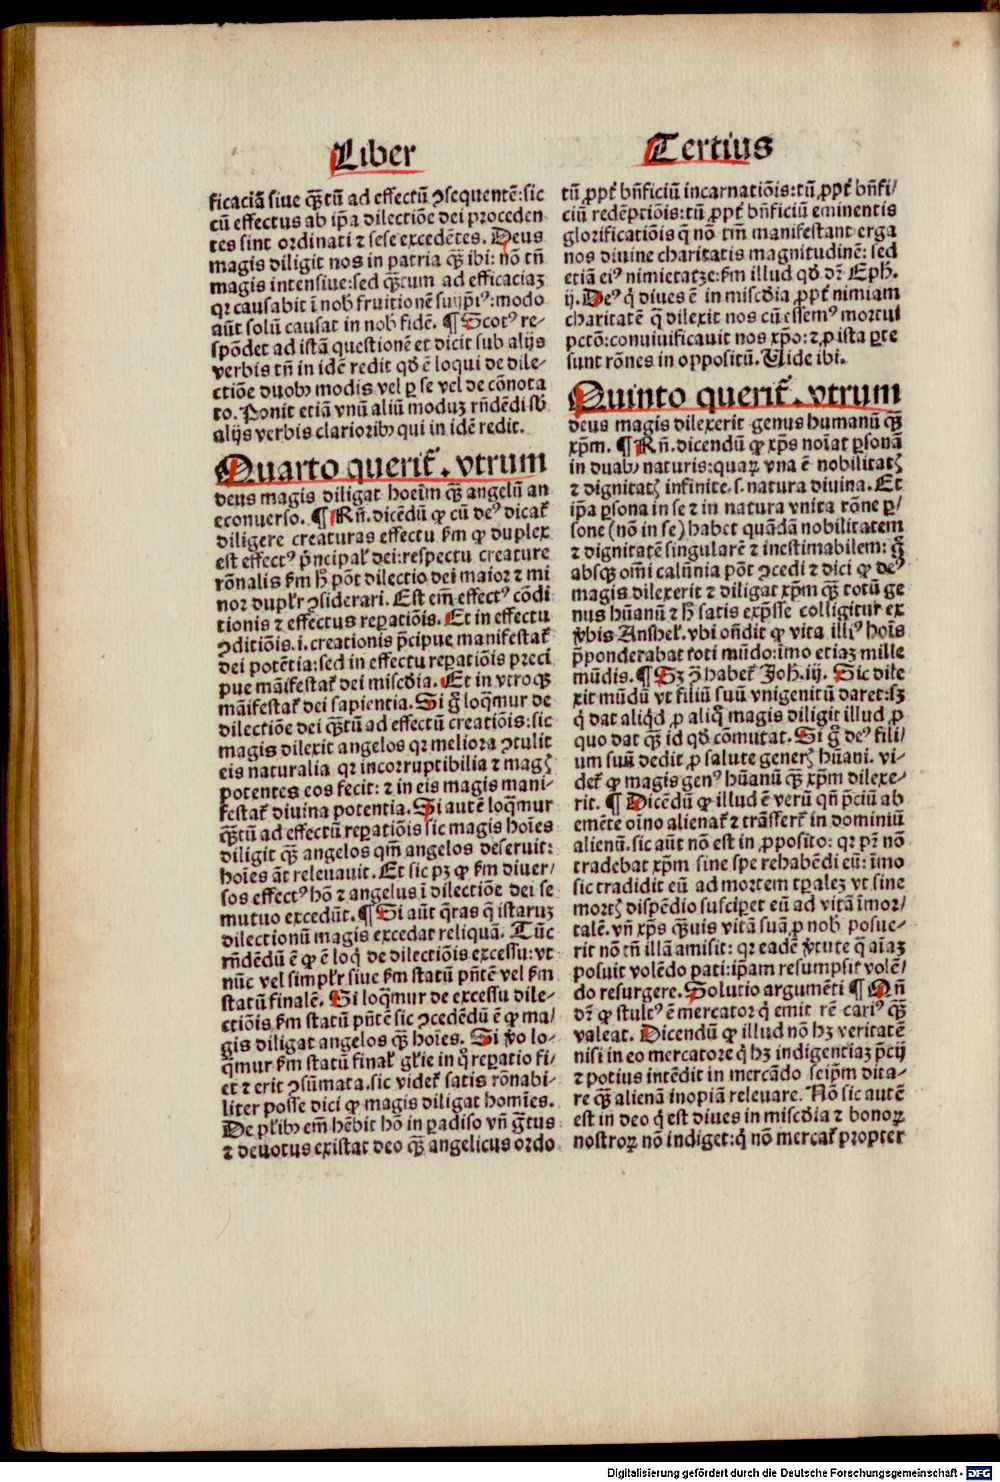 Liber
Tertius
ficaciã siue q̃tũ ad effectũ ꝯsequentẽ: sic
cũ effectus ab ip̃a dilectiõe dei proceden
tes sint ordinati ⁊ sese excedẽtes. Deus
magis diligit nos in patria q̃ȝ ibi: nõ tñ
magis intensiue: sed q̃tum ad efficaciaȝ
qr causabit ĩ nob̾ fruitionẽ sui ip̃iꝰ: modo
aũt solũ causat in nob̾ fidẽ. ¶ Scotꝰ re-
spõdet ad istã questionẽ et dicit sub alijs
verbis tñ in idẽ redit qđ ẽ loqui de dile-
ctiõe duobꝫ modis vel ꝑ se vel de cõnota
to. Ponit etiã vnũ aliũ moduȝ rñdẽdi sb̾
alijs verbis clarioribꝫ qui in idẽ redit.
Quarto querit̃. vtrum
deus magis diligat hoeĩm q̃ȝ angelũ an
econuerso. ¶ Rñ. dicẽdũ ꝙ cũ deꝰ dicat̃
diligere creaturas effectu fm̃ ꝙ duplex
est effectꝰ p̃ncipal̃ dei: respectu creature
rõnalis fm̃ h̾ põt dilectio dei maior ⁊ mi
nor dupłr ꝯsiderari. Est em̃ effectꝰ cõdi
tionis ⁊ effectus reꝑatiõis. Et in effectu
ꝯditiõis .i. creationis p̃cipue manifestat̃
dei potẽtia: sed in effectu reꝑatiõis preci
pue mãifestat̃ dei misc̃dia. Et in vtroqꝫ
mãifestat̃ dei sapientia. Si g̊ loq̃mur de
dilectiõe dei q̃tũ ad effectũ creatiõis: sic
magis dilexit angelos qr meliora ꝯtulit
eis naturalia qr incorruptibilia ⁊ mag̃
potentes eos fecit: ⁊ in eis magis mani-
festat̃ diuina potentia. Si autẽ loq̃mur
q̃tũ ad effectũ reꝑatiõis sic magis hoĩes
diligit q̃ȝ angelos qm̃ angelos deseruit:
hoĩes ãt releuauit. Et sic pꝫ ꝙ fm̃ diuer/
sos effectꝰ hõ ⁊ angelus ĩ dilectiõe dei se
mutuo excedũt. ¶ Si aũt q̃ras q̃ istaruȝ
dilectionũ magis excedat reliquã. Tũc
rñdẽdũ ẽ ꝙ ẽ loq̇ de dilectiõis excessu: vt
nũc vel simpłr siue fm̃ statũ pñtẽ vel fm̃
statũ finalẽ. Si loq̃mur de excessu dile-
ctiõis fm̃ statũ pñtẽ sic ꝯcedẽdũ ẽ ꝙ ma/
gis diligat angelos q̃ȝ hoĩes. Si ṽo lo-
q̃mur fm̃ statũ final̃ gl̃ie in q̊ reꝑatio fi/
et ⁊ erit ꝯsũmata. sic videt̃ satis rõnabi-
liter posse dici ꝙ magis diligat homĩes.
De pl̃ibꝫ em̃ hẽbit hõ in ꝑadiso vñ g̃tus
⁊ deuotus existat deo q̃ȝ angelicus ordo
tũ ꝓpt̃ bñficiũ incarnatiõis: tũ ꝓpt̃ bñfi/
ciũ redẽptiõis: tũ ꝓpt̃ bñficiũ eminentis
glorificatiõis q̃ nõ tm̃ manifestant erga
nos diuine charitatis magnitudinẽ: sed
etiã eiꝰ nimietatẽ: fm̃ illud qđ dr̃ Eph̾.
ij. Deꝰ q̇ diues ẽ in misc̃dia ꝓpt̃ nimiam
charitatẽ q̃ dilexit nos cũ essemꝰ mortui
pctõ: conuiuificauit nos xp̃o: ⁊ ꝓ ista ꝑte
sunt rõnes in oppositũ. Uide ibi.
Quinto querit̃. vtrum
deus magis dilexerit genus humanũ q̃ȝ
xp̃m. ¶ Rñ. dicendũ ꝙ xp̃s noĩat ꝑsonã
in duabꝫ naturis: quaꝝ vna ẽ nobilitat̃
⁊ dignitat̃ infinite .s. natura diuina. Et
ip̃a ꝑsona in se ⁊ in natura vnita rõne ꝑ/
sone (nõ in se) habet quãdã nobilitatem
⁊ dignitatẽ singularẽ ⁊ inestimabilem: g̊
absqꝫ om̃i calũnia põt ꝯcedi ⁊ dici ꝙ deꝰ
magis dilexerit ⁊ diligat xp̃m q̃ȝ totũ ge
nus hũanũ ⁊ h̾ satis exp̃sse colligitur ex
ṽbis Anshel̃. vbi oñdit ꝙ vita illiꝰ hoĩs
p̃ponderabat toti mũdo: ĩmo etiaȝ mille
mũdis. ¶ Sȝ ꝯ̃ habet̃ Joh̾. iij. Sic dile
xit mũdũ vt filiũ suũ vnigenitũ daret: sȝ
q̇ dat aliq̇d ꝓ aliq̊ magis diligit illud ꝓ
quo dat q̃ȝ id qđ cõmutat. Si g̊ deꝰ fili/
um suũ dedit ꝓ salute gener̃ hũani. vi-
det̃ ꝙ magis genꝰ hũanũ q̃ȝ xp̃m dilexe/
rit. ¶ Dicẽdũ ꝙ illud ẽ verũ qñ p̃ciũ ab
emẽte oĩno alienat̃ ⁊ trãsfert̃ in dominiũ
alienũ. sic aũt nõ est in ꝓposito: qr pr̃ nõ
tradebat xp̃m sine spe rehabẽdi eũ: ĩmo
sic tradidit eũ ad mortem tꝑaleȝ vt sine
mort̃ dispẽdio susciꝑet eũ ad vitã ĩmor/
talẽ. vñ xp̃s q̃uis vitã suã ꝓ nob̾ posue-
rit nõ tñ illã amisit: qr eadẽ ṽtute q̃ aĩaȝ
posuit volẽdo pati: ip̃am resumpsit volẽ/
do resurgere. Solutio argumẽti ¶ Qñ
dr̃ ꝙ stultꝰ ẽ mercator q̇ emit rẽ cariꝰ q̃ȝ
valeat. Dicendũ ꝙ illud nõ hȝ veritatẽ
nisi in eo mercatore q̇ hȝ indigentiaȝ p̃cij
⁊ potius intẽdit in mercãdo seip̃m dita-
re q̃ȝ alienã inopiã releuare. Nõ sic autẽ
est in deo q̇ est diues in misc̃dia ⁊ bonoꝝ
nostroꝝ nõ indiget: q̇ nõ mercat̃ propter
Digitalisierung gefördert durch die Deutsche Forschungsgemeinschaft - DFG